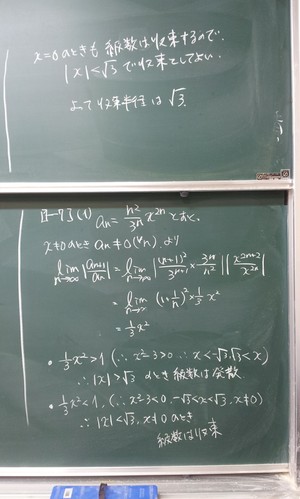 x=0のときも級数は収束するので、
|x|<√3で収束としてよい。
よって収束半径は√3.
[I-7](1) an = n²/3ⁿ x²ⁿ とおく。
x≠0のとき an≠0 (∀n) より
lim n→∞ |an+1/an| = lim n→∞ |(n+1)²/3ⁿ⁺¹ × 3ⁿ/n²| |x²ⁿ⁺²/x²ⁿ|
= lim n→∞ (1+1/n)² × 1/3 x²
= 1/3 x²
• 1/3 x² > 1 (∴ x²-3>0 ∴ x<-√3, √3<x)
∴ |x|>√3 のとき級数は発散.
• 1/3 x² < 1, (∴ x²-3<0, -√3<x<√3, x≠0)
∴ |x|<√3, x≠0 のとき
級数は収束